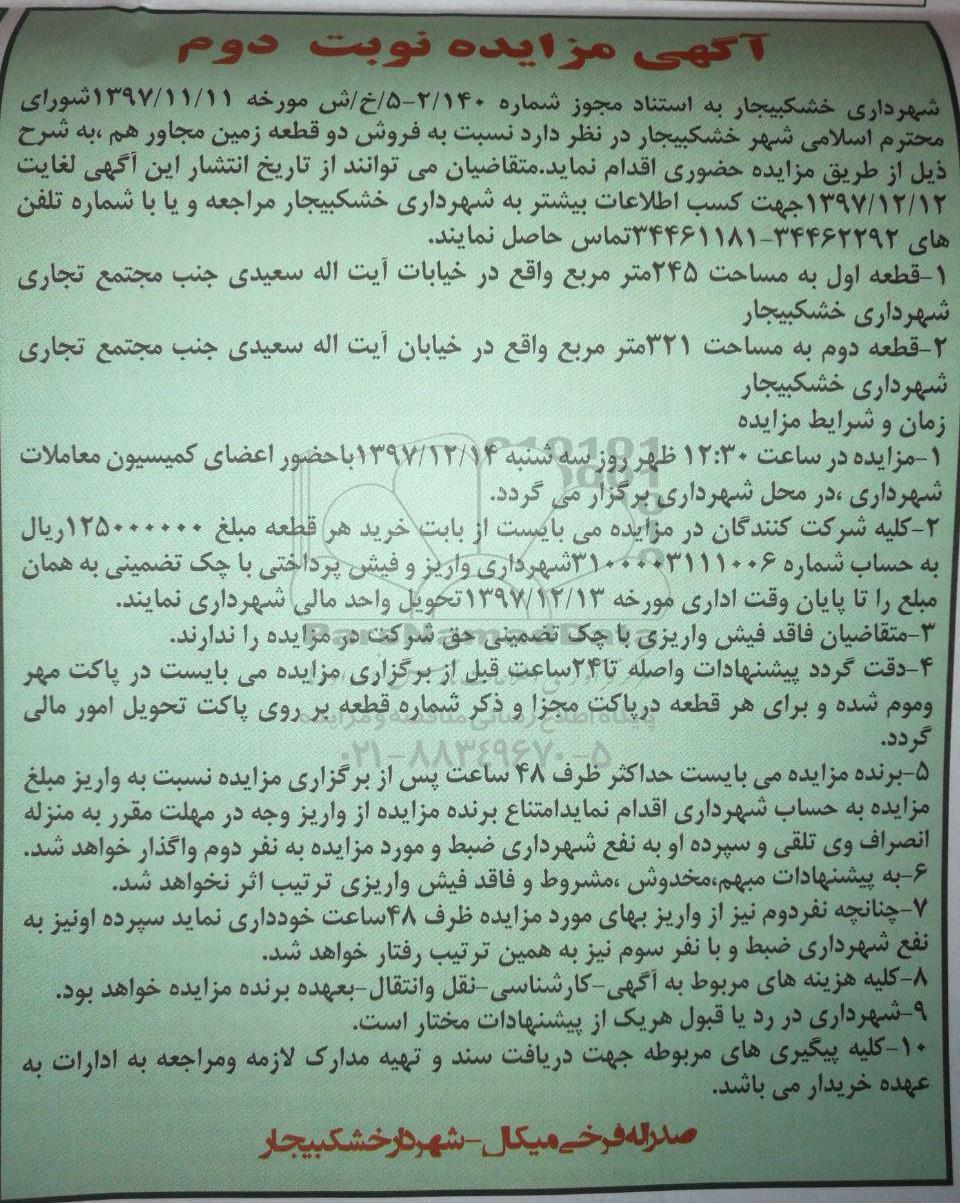 آگهی مزایده نوبت دوم
شهرداری خشکبیجار به استناد مجوز شماره ۵-۲/۱۴۰/خ/ش مورخه ۱۳۹۷/۱۱/۱۱شورای
محترم اسلامی شهر خشکبیجار در نظر دارد نسبت به فروش دو قطعه زمین مجاور هم ،به شرح
ذیل از طریق مزایده حضوری اقدام نماید.متقاضیان می توانند از تاریخ انتشار این آگهی لغایت
۱۳۹۷/۱۲/۱۲جهت کسب اطلاعات بیشتر به شهرداری خشکبیجار مراجعه و یا با شماره تلفن
های ۳۴۴۶۲۲۹۲-۳۴۴۶۱۱۸۱تماس حاصل نمایند.
۱-قطعه اول به مساحت ۲۴۵متر مربع واقع در خیابات آیت اله سعیدی جنب مجتمع تجاری
شهرداری خشکبیجار
۲-قطعه دوم به مساحت ۳۲۱متر مربع واقع در خیابان آیت اله سعیدی جنب مجتمع تجاری
شهرداری خشکبیجار
زمان و شرایط مزایده
۱-مزایده در ساعت ۱۲:۳۰ ظهر روز سه شنبه ۱۳۹۷/۱۲/۱۴باحضور اعضای کمیسیون معاملات
شهرداری ،در محل شهرداری برگزار می گردد.
۲-کلیه شرکت کنندگان در مزایده می بایست از بابت خرید هر قطعه مبلغ ۱۲۵۰۰۰۰۰۰ریال
به حساب شماره ۳۱۰۰۰۰۳۱۱۱۰۰۶شهرداری واریز و فیش پرداختی با چک تضمینی به همان
مبلغ را تا پایان وقت اداری مورخه ۱۳۹۷/۱۲/۱۳تحویل واحد مالی شهرداری نمایند.
۳-متقاضیان فاقد فیش واریزی با چک تضمینی حق شرکت در مزایده را ندارند.
۴-دقت گردد پیشنهادات واصله تا۲۴ساعت قبل از برگزاری مزایده می بایست در پاکت مهر
وموم شده و برای هر قطعه درپاکت مجزا و ذکر شماره قطعه بر روی پاکت تحویل امور مالی
گردد.
۰۲۱-۸۸۳۴۹۶۷۰-۵
۵-برنده مزایده می بایست حداکثر ظرف ۴۸ ساعت پس از برگزاری مزایده نسبت به واریز مبلغ
مزایده به حساب شهرداری اقدام نمایدامتناع برنده مزایده از واریز وجه در مهلت مقرر به منزله
انصراف وی تلقی و سپرده او به نفع شهرداری ضبط و مورد مزایده به نفر دوم واگذار خواهد شد.
۶-به پیشنهادات مبهم،مخدوش ،مشروط و فاقد فیش واریزی ترتیب اثر نخواهد شد.
۷-چنانچه نفردوم نیز از واریز بهای مورد مزایده ظرف ۴۸ساعت خودداری نماید سپرده اونیز به
نفع شهرداری ضبط و با نفر سوم نیز به همین ترتیب رفتار خواهد شد.
۸-کلیه هزینه های مربوط به آگهی-کارشناسی-نقل وانتقال-بعهده برنده مزایده خواهد بود.
۹-شهرداری در رد یا قبول هریک از پیشنهادات مختار است.
۱۰-کلیه پیگیری های مربوطه جهت دریافت سند و تهیه مدارک لازمه ومراجعه به ادارات به
عهده خریدار می باشد.
صدراله فرخی میکال-شهردارخشکبیجار